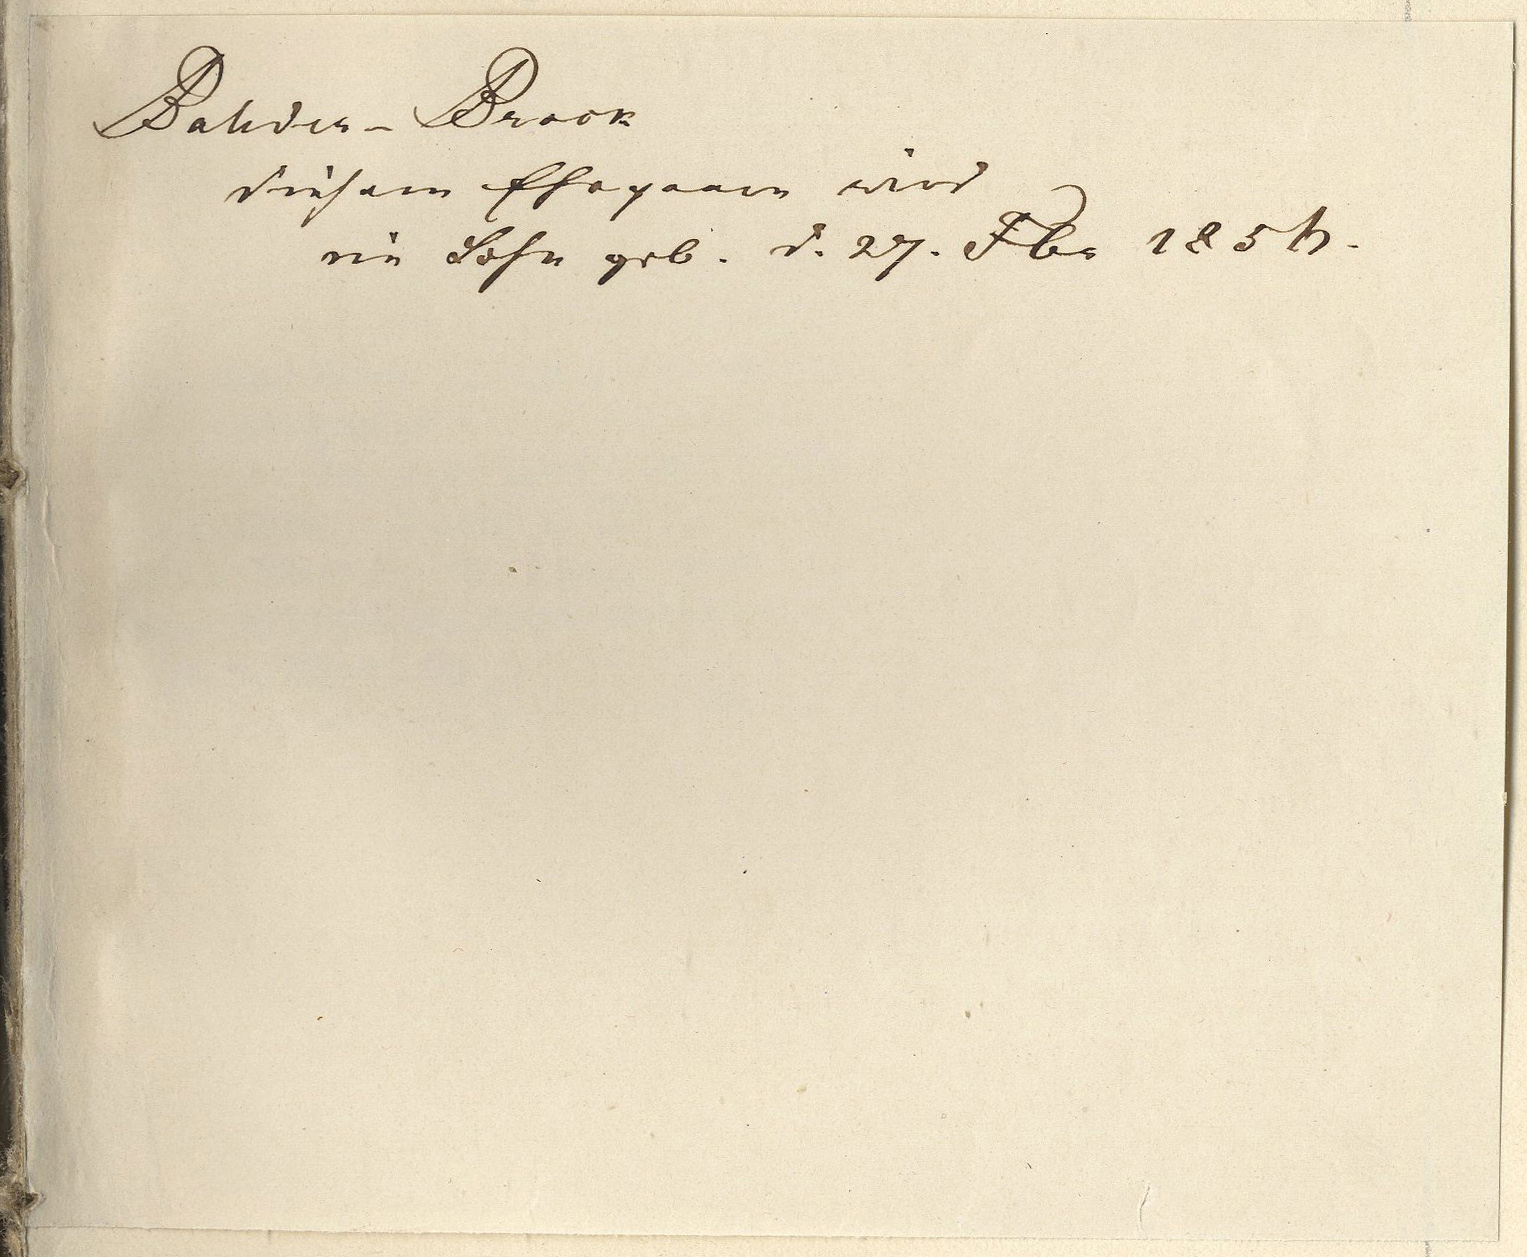 Bahder - Brook
diesem Ehepaare wird
ein Sohn geb. d. 27. Fbr 1854.